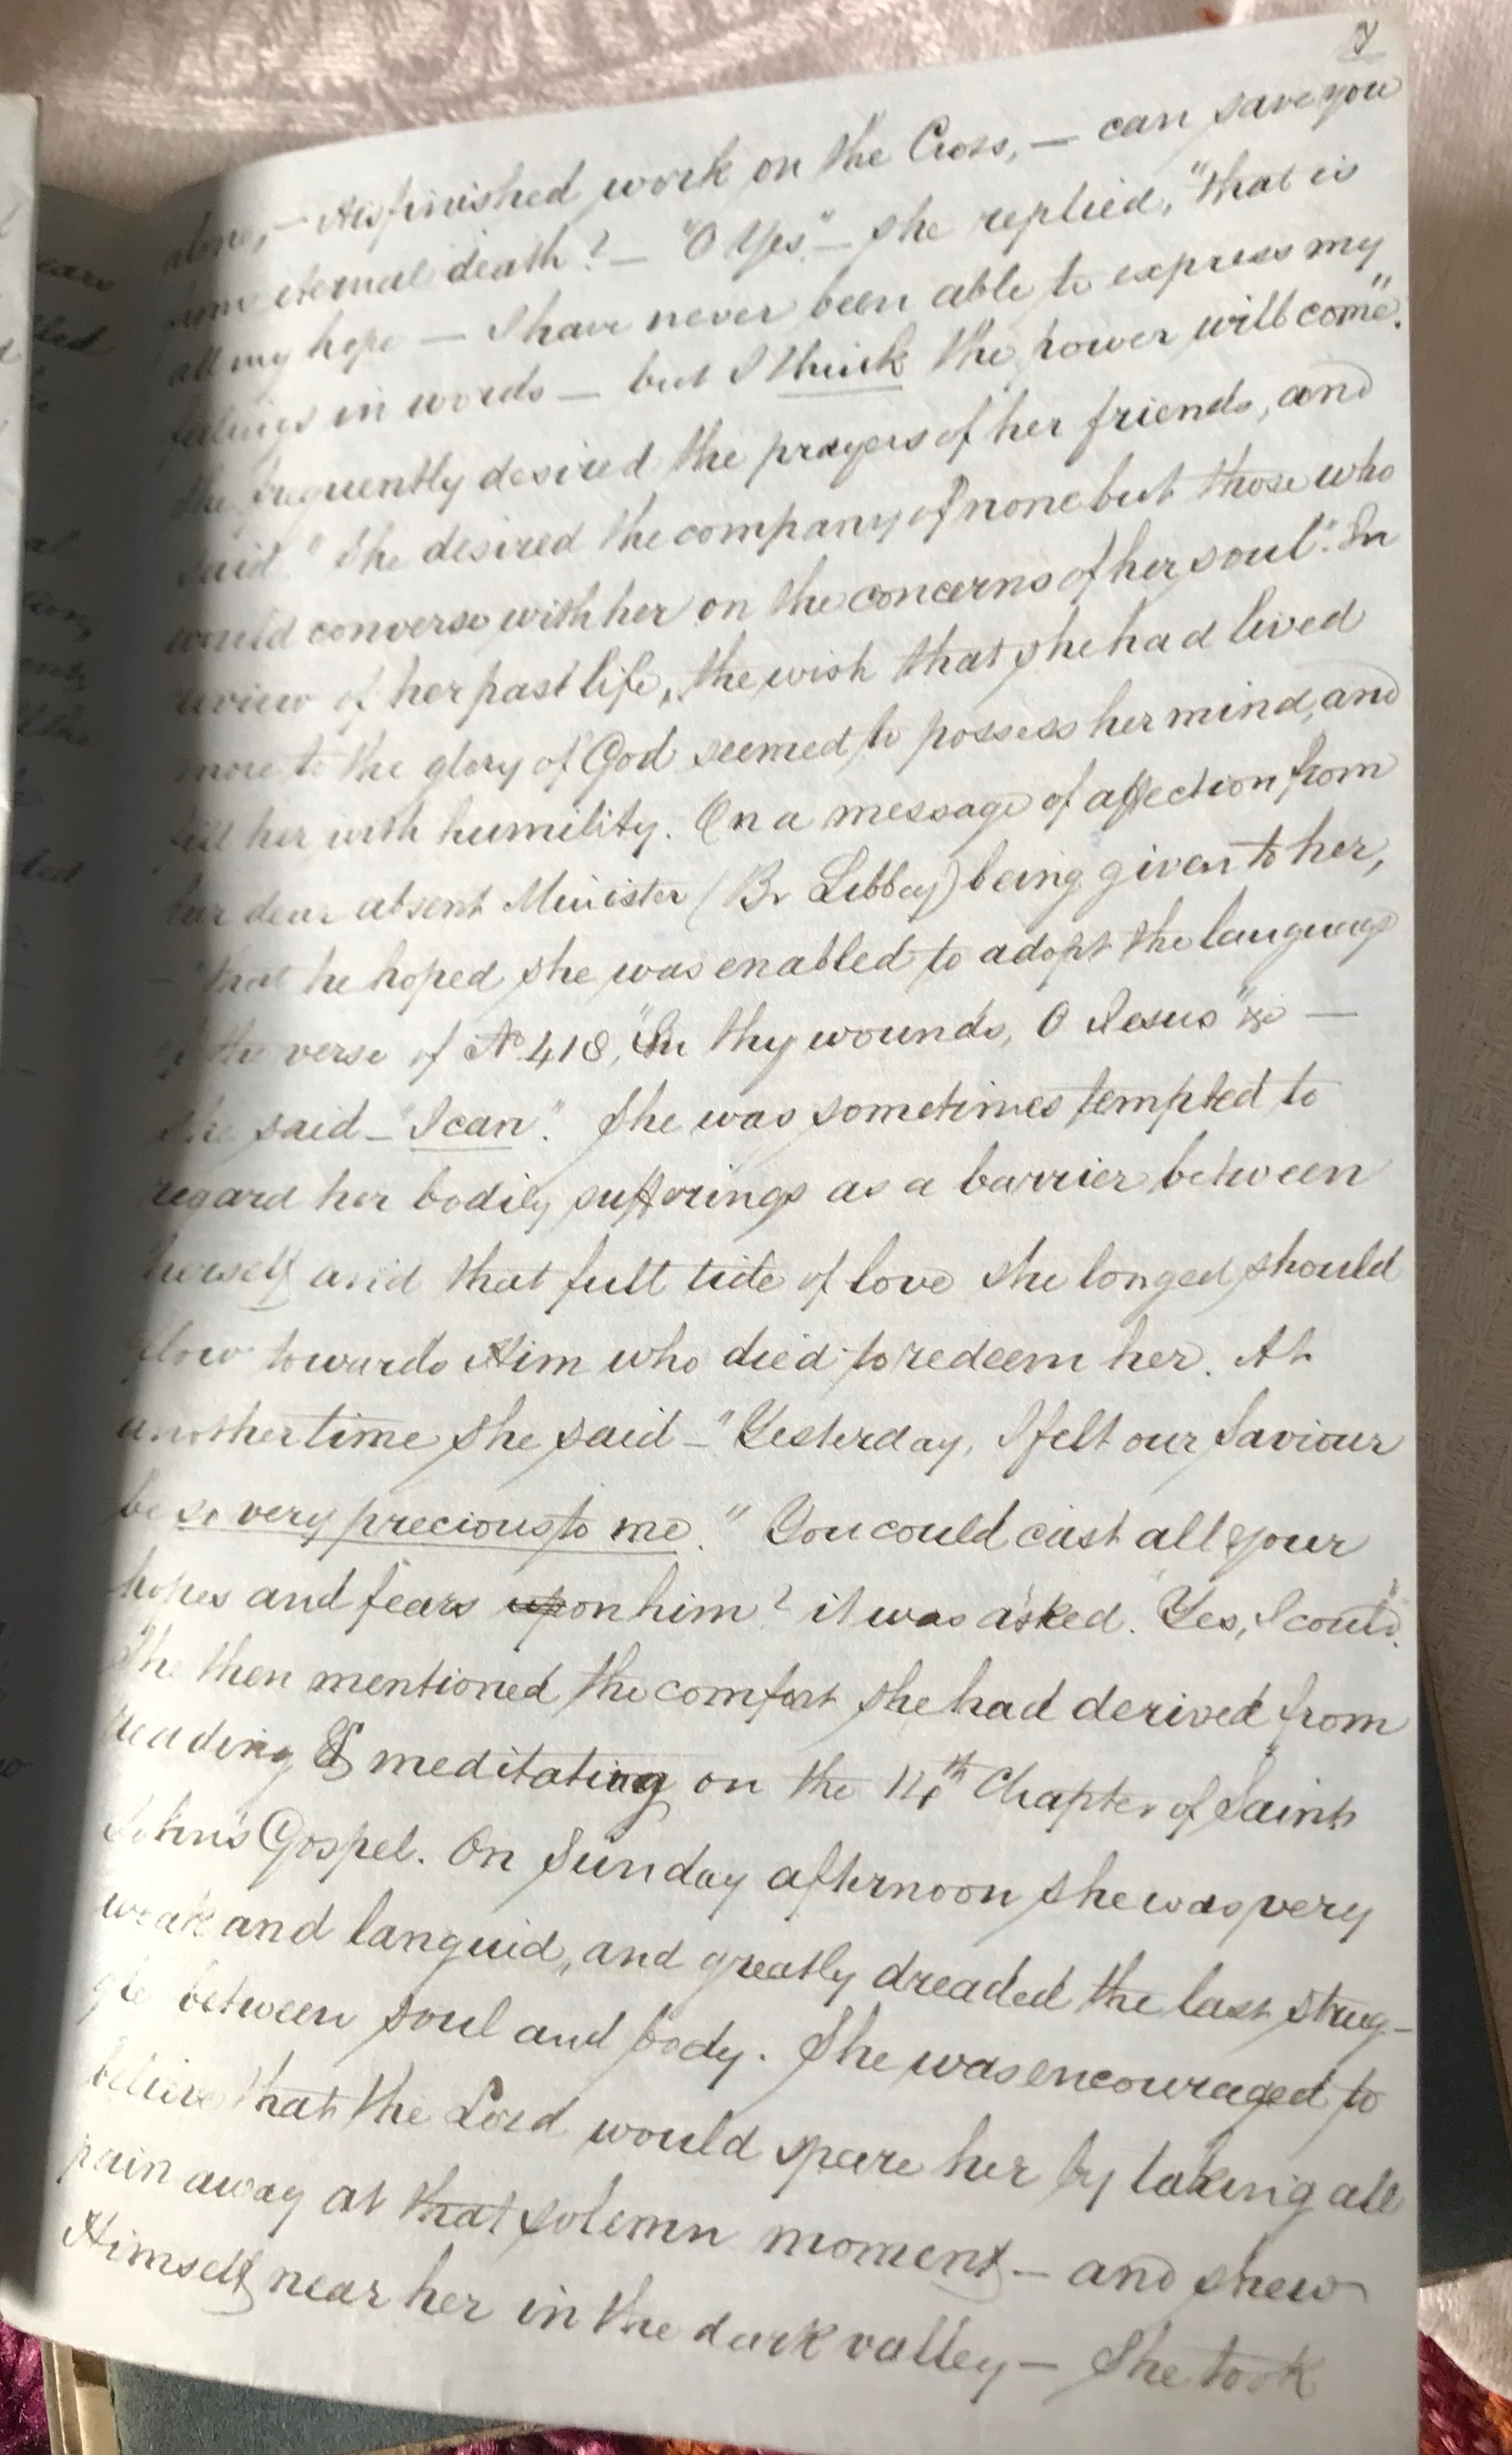 alone, — His finished work on the Cross, — can save you
from eternal death? — "O Yes." — she replied, "that is
all my hope — I have never been able to express my
feelings in words — but I think the power will come."
She frequently desired the prayers of her friends, and
said. "She desired the company of none but those who
would converse with her on the concerns of her soul". In
review of her past life, the wish that she had lived
more to the glory of God seemed to possess her mind, and
fill her with humility. On a message of affection from
our dear absent Minister (Br Libbey) being given to her,
— "that he hoped she was enabled to adopt the language
of the verse of No 418, "In thy wounds, O Jesus" &c —
She said — "I can". She was sometimes tempted to
regard her bodily sufferings as a barrier between
herself and that full tide of love she longed should
flow towards Him who died to redeem her. At
another time she said — "Yesterday, I felt our Saviour
be so very precious to me." You could cast all your
hopes and fears upon him? it was asked. "Yes, I could".
She then mentioned the comfort she had derived from
reading & meditating on the 14th Chapter of Saint
John's Gospel. On Sunday afternoon she was very
weak and languid, and greatly dreaded the last strug-
gle between soul and body. She was encouraged to
believe that the Lord would spare her by taking all
pain away at that solemn moment — and shew
Himself near her in the dark valley — She took